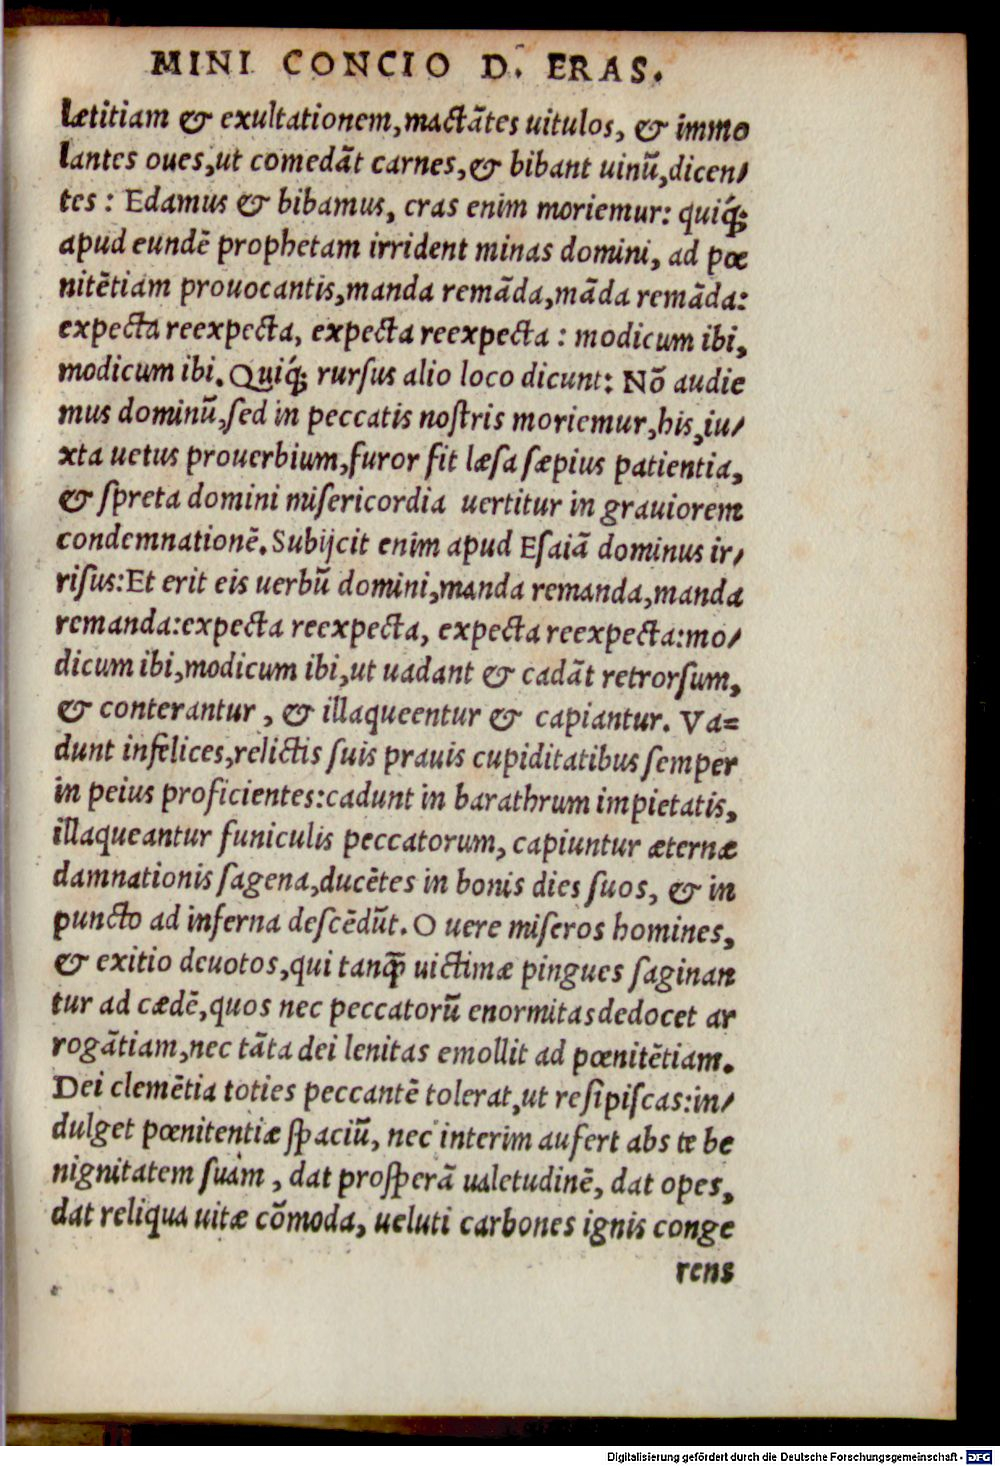 MINI CONCIO D. ERAS.
lætitiam & exultationem, mactãtes uitulos, & immo
lantes oues, ut comedãt carnes, & bibant uinũ, dicen/
tes : Edamus & bibamus, cras enim moriemur: quiq́;
apud eundẽ prophetam irrident minas domini, ad pœ
nitẽtiam prouocantis, manda remãda, mãda remãda:
expecta reexpecta, expecta reexpecta : modicum ibi,
modicum ibi. Quiq́; rursus alio loco dicunt: Nõ audie
mus dominũ, sed in peccatis nostris moriemur, his, iu/
xta uetus prouerbium, furor fit læsa sæpius patientia,
& spreta domini misericordia uertitur in grauiorem
condemnationẽ. Subijcit enim apud Esaiã dominus ir/
risus: Et erit eis uerbũ domini, manda remanda, manda
remanda: expecta reexpecta, expecta reexpecta: mo/
dicum ibi, modicum ibi, ut uadant & cadãt retrorsum,
& conterantur, & illaqueentur & capiantur. Va=
dunt infelices, relictis suis prauis cupiditatibus semper
in peius proficientes: cadunt in barathrum impietatis,
illaqueantur funiculis peccatorum, capiuntur æternæ
damnationis sagena, ducẽtes in bonis dies suos, & in
puncto ad inferna descẽdũt. O uere miseros homines,
& exitio deuotos, qui tanq̃ uictimæ pingues saginan
tur ad cædẽ, quos nec peccatorũ enormitas dedocet ar
rogãtiam, nec tãta dei lenitas emollit ad pœnitẽtiam.
Dei clemẽtia toties peccantẽ tolerat, ut resipiscas: in/
dulget pœnitentiæ spaciũ, nec interim aufert abs te be
nignitatem suam, dat prosperã ualetudinẽ, dat opes,
dat reliqua uitæ cõmoda, ueluti carbones ignis conge
rens
Digitalisierung gefördert durch die Deutsche Forschungsgemeinschaft - DFG